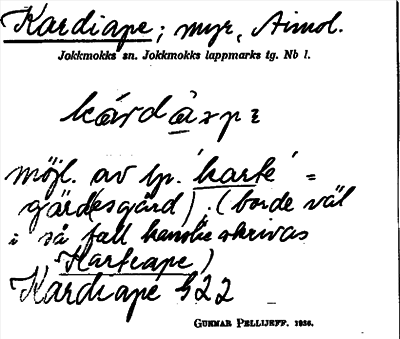 Kardiape; myr, Aimol.
Jokkmokks sn. Jokkmokks lappmarks tg. Nb l.
kárdàpe
möjl. av lp. 'karte' =
gärd(esgård), (borde väl
i så fall kanske skrivas
Kartiape)
Kardiape 522
GUNNAR PELLIJEFF. 1936.